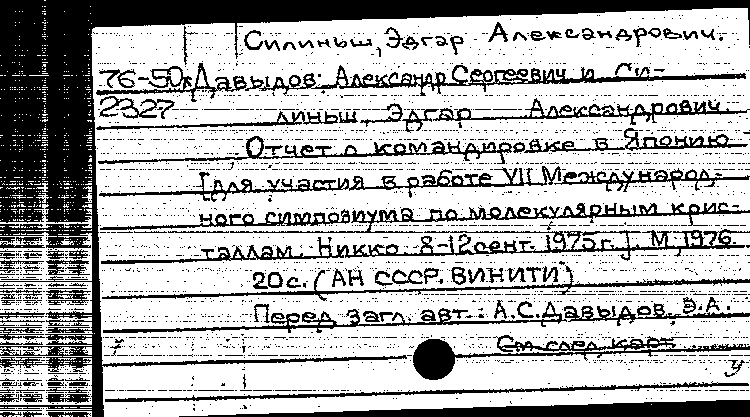 Силиньш, Эдгар Александрович.
76-50к Давыдов Александр Сергеевич и Си-
2327 линьш, Эдгар Александрович
Отчет о командировке в Японию
[для участия в работе VII Международ-
ного симпозиума по молекулярным крис-
таллам. Никко. 8-12 сент. 1975 г.]. М., 1976.
20 с. (АН СССР. ВИНИТИ)
Перед загл. авт.: А.С. Давыдов, Э.А.
См. след. карт.
у